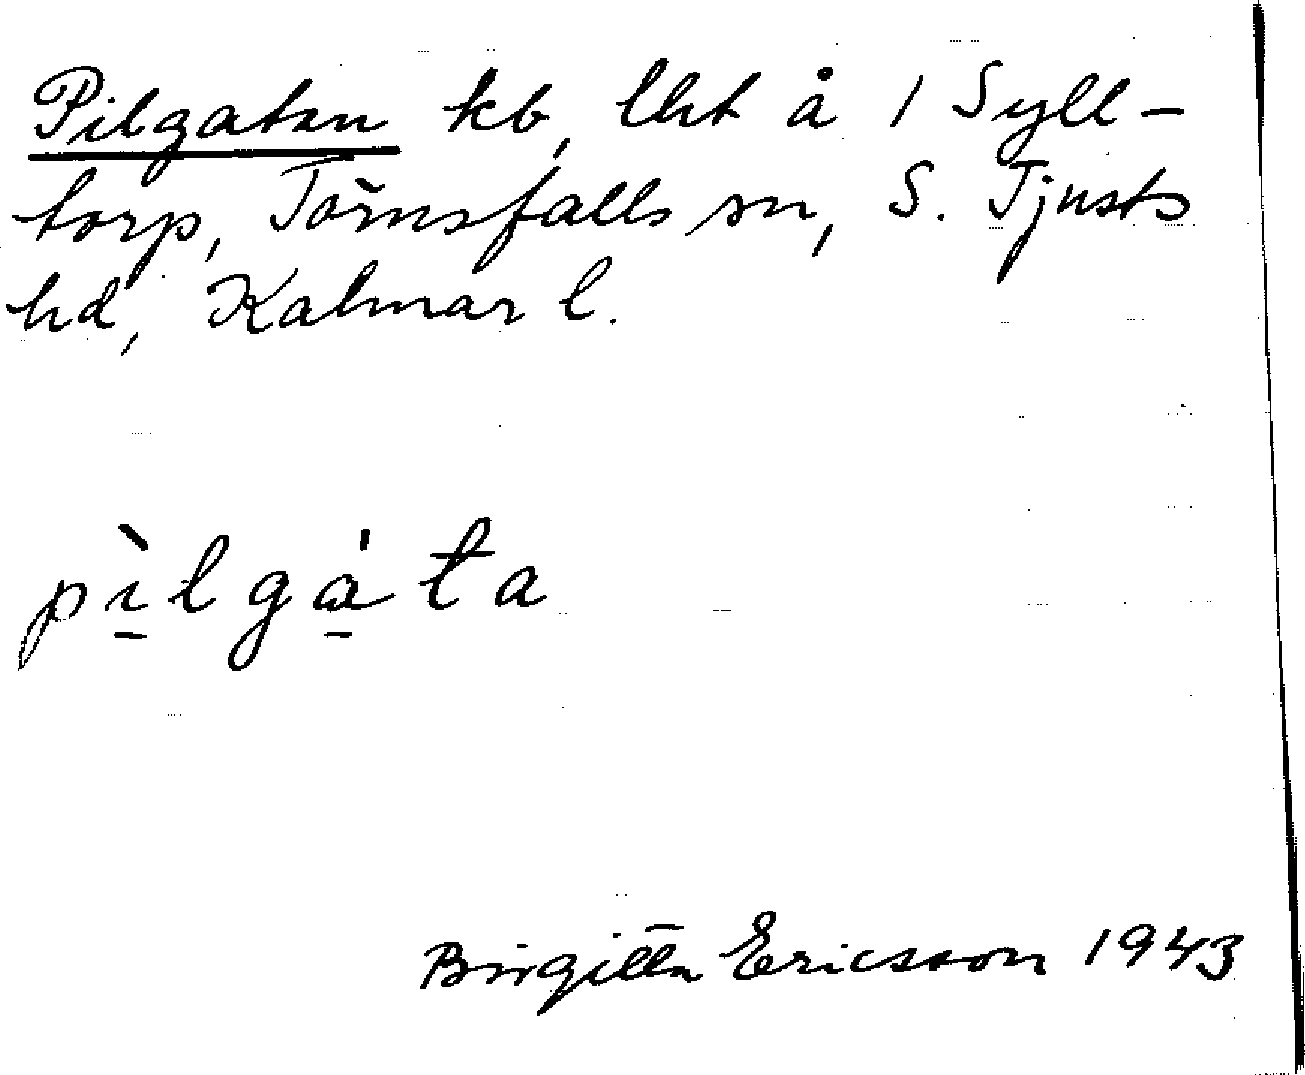 Pilgatan kb, lht å 1 Syll-
torp, Törnsfalls sn, S. Tjusts
hd, Kalmar l.
pì̱lga̱̍ta
Birgitta Ericsson 1943